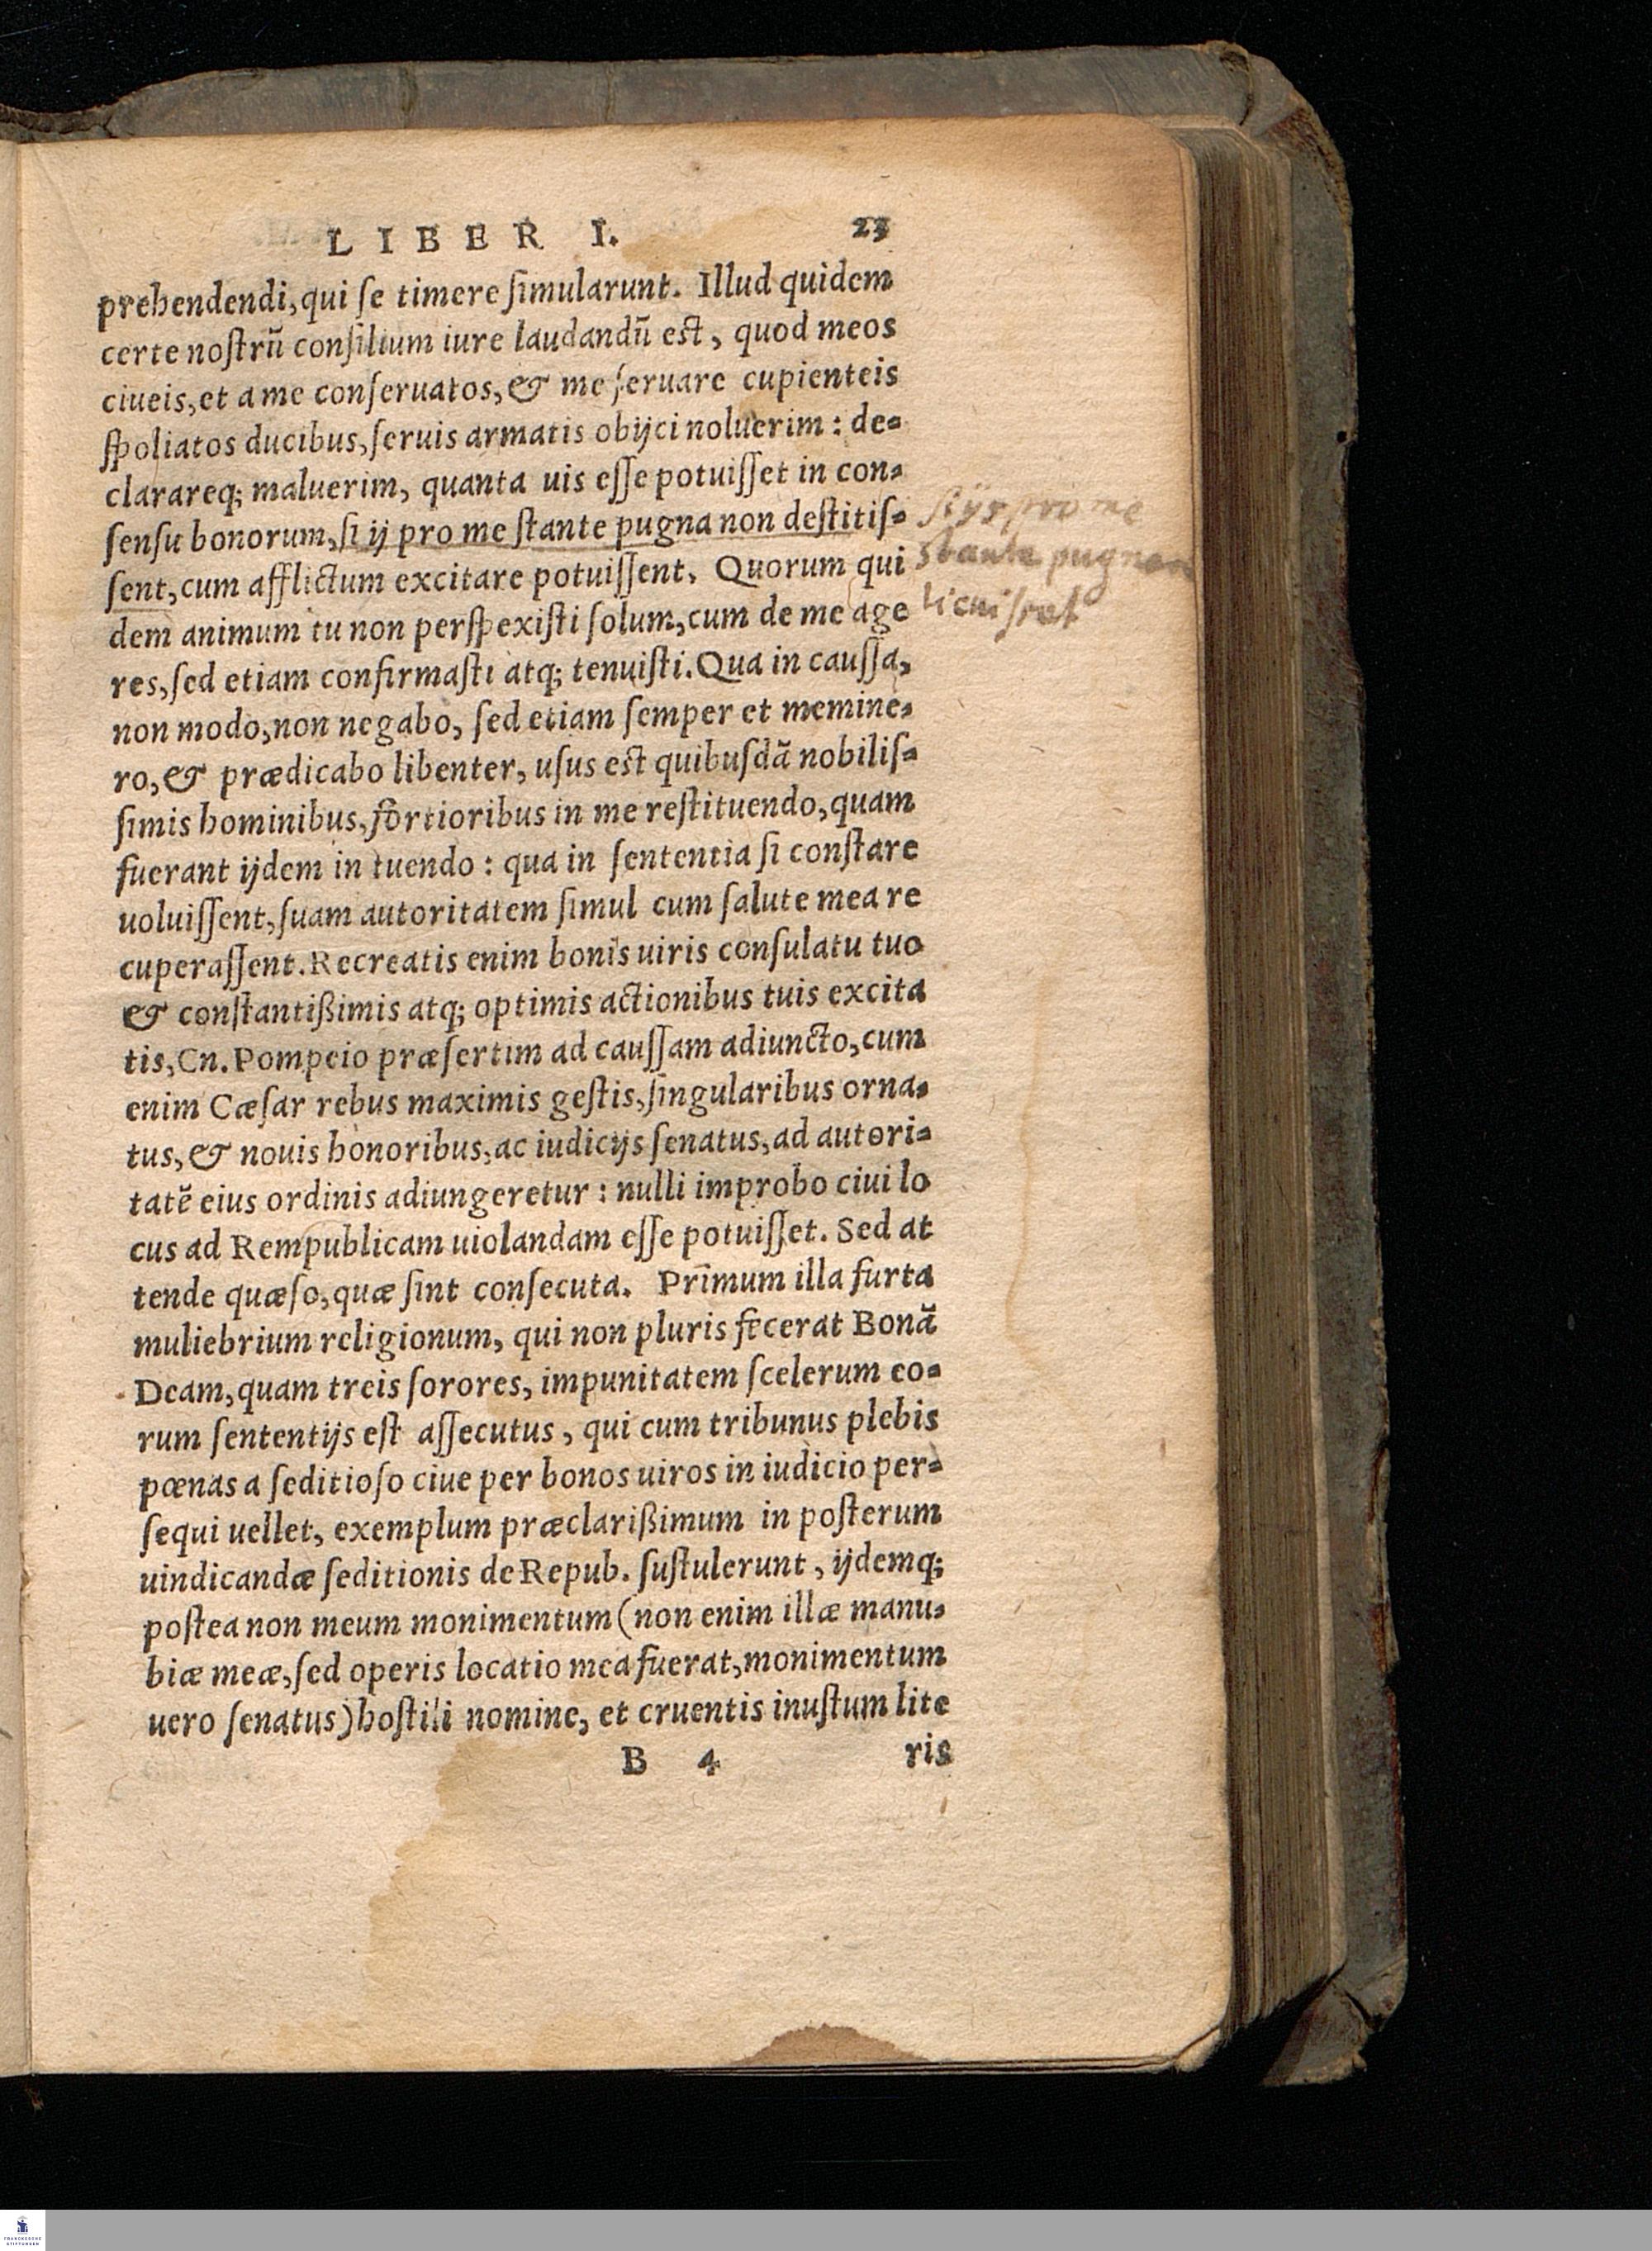 LIBER I. 23
prehendendi, qui se timere simularunt. Illud quidem
certe nostrũ consilium iure laudandũ est, quod meos
ciueis, et a me conseruatos, & me seruare cupienteis
spoliatos ducibus, seruis armatis obijci noluerim: de=
clarareq; maluerim, quanta uis esse potuisset in con=
sensu bonorum, si ij pro me stante pugna non destitis=
sent, cum afflictum excitare potuissent. Quorum qui
dem animum tu non perspexisti solum, cum de me age
res, sed etiam confirmasti atq; tenuisti. Qua in caussa,
non modo, non negabo, sed etiam semper et memine=
ro, & prædicabo libenter, usus est quibusdã nobilis=
simis hominibus, fortioribus in me restituendo, quam
fuerant ijdem in tuendo: qua in sententia si constare
uoluissent, suam autoritatem simul cum salute mea re
cuperassent. Recreatis enim bonis uiris consulatu tuo
& constantißimis atq; optimis actionibus tuis excita
tis, Cn. Pompeio præsertim ad caussam adiuncto, cum
enim Cæsar rebus maximis gestis, singularibus orna=
tus, & nouis honoribus, ac iudicijs senatus, ad autori=
tatẽ eius ordinis adiungeretur: nulli improbo ciui lo
cus ad Rempublicam uiolandam esse potuisset. Sed at
tende quæso, quæ sint consecuta. Primum illa furta
muliebrium religionum, qui non pluris fecerat Bonã
Deam, quam treis sorores, impunitatem scelerum eo=
rum sententijs est assecutus, qui cum tribunus plebis
pœnas a seditioso ciue per bonos uiros in iudicio per=
sequi uellet, exemplum præclarißimum in posterum
uindicandæ seditionis de Repub. sustulerunt, ijdemq;
postea non meum monimentum (non enim illæ manu=
biæ meæ, sed operis locatio mea fuerat, monimentum
uero senatus) hostili nomine, et cruentis inustum lite
B 4 ris
pro me
stante pugnan
licuisset
FRANCKESCHE
STIFTUNGEN